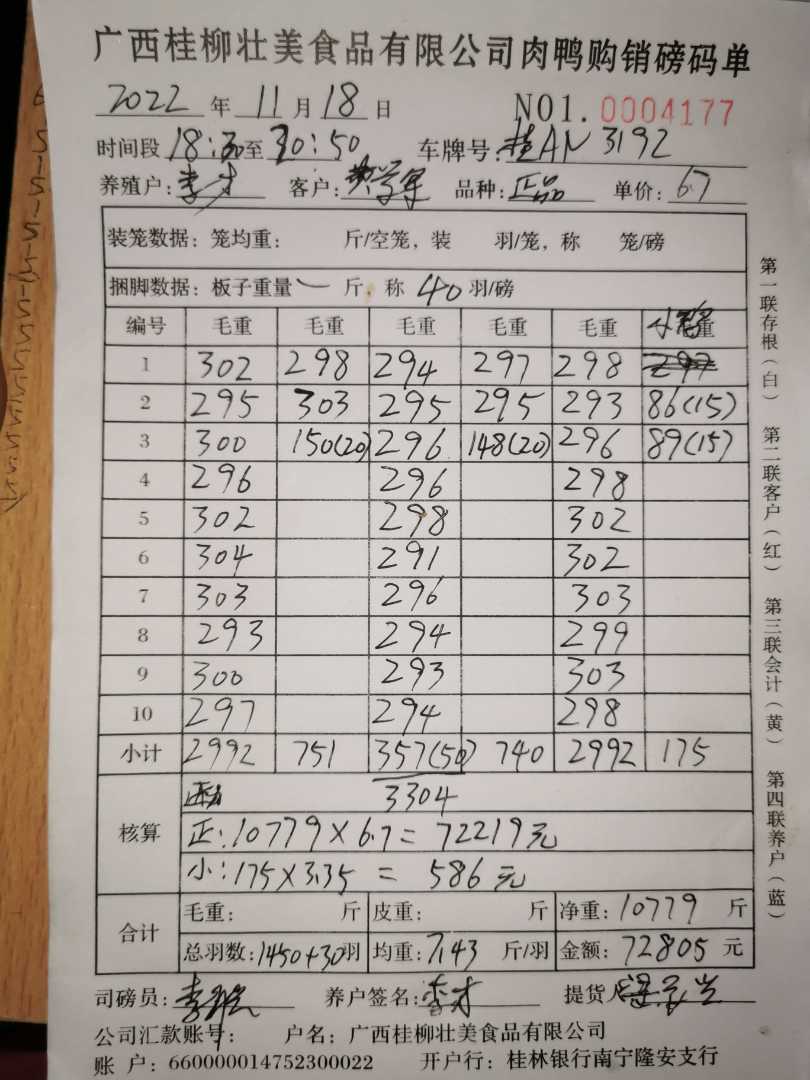 广西桂柳壮美食品有限公司肉鸭购销磅码单
2022 年 11 月 18 日 NO1. 0004177
时间段 18:30 至 20:50 车牌号: 桂AN3192
养殖户: 李才 客户: 品种: 正品 单价: 6.7
装笼数据: 笼均重: 斤/空笼, 装 羽/笼, 称 笼/磅
捆脚数据: 板子重量 一 斤, 称 40 羽/磅
编号 毛重 毛重 毛重 毛重 毛重 小 重
1 302 298 294 297 298 297
2 295 303 295 295 293 86(15)
3 300 150(20) 296 148(20) 296 89(15)
4 296 296 298
5 302 298 302
6 304 291 302
7 303 296 303
8 293 294 299
9 300 293 303
10 297 294 298
小计 2992 751 357(50) 740 2992 175
核算 3304
正: 10779×6.7= 72219元
小: 175×3.35 = 586 元
合计 毛重: 斤 皮重: 斤 净重: 10779 斤
总羽数: 1450+30 羽 均重: 7.43 斤/羽 金额: 72805 元
司磅员: 养户签名: 李才 提货人
公司汇款账号: 户名: 广西桂柳壮美食品有限公司
账 户: 660000014752300022 开户行: 桂林银行南宁隆安支行
第一联存根(白) 第二联客户(红) 第三联会计(黄) 第四联养户(蓝)